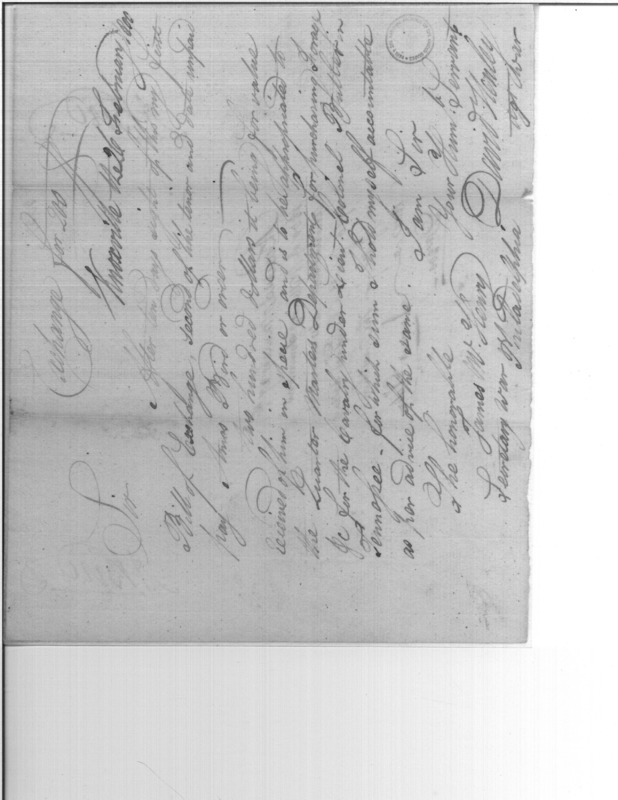 Exchange for 200
Knoxville the 12 February 1800
Sir
After ten days sight of this my first
Bill of Exchange, second of the tenor and date unpaid
pay Bird or order
two hundred dollars it being for value
received of him in specie and is to be appropriated to
the Quarter Masters Department for purchasing Forage
&c for the Cavalry under Lieut. Colonel Butler in
Tennessee - for which sum I hold myself accountable
as per advice of the same. I am Sir
Your Hum Servant
David Henley
Agt War
The honorable
James McHenry Esqr
Secretary War Dt Philadelphia